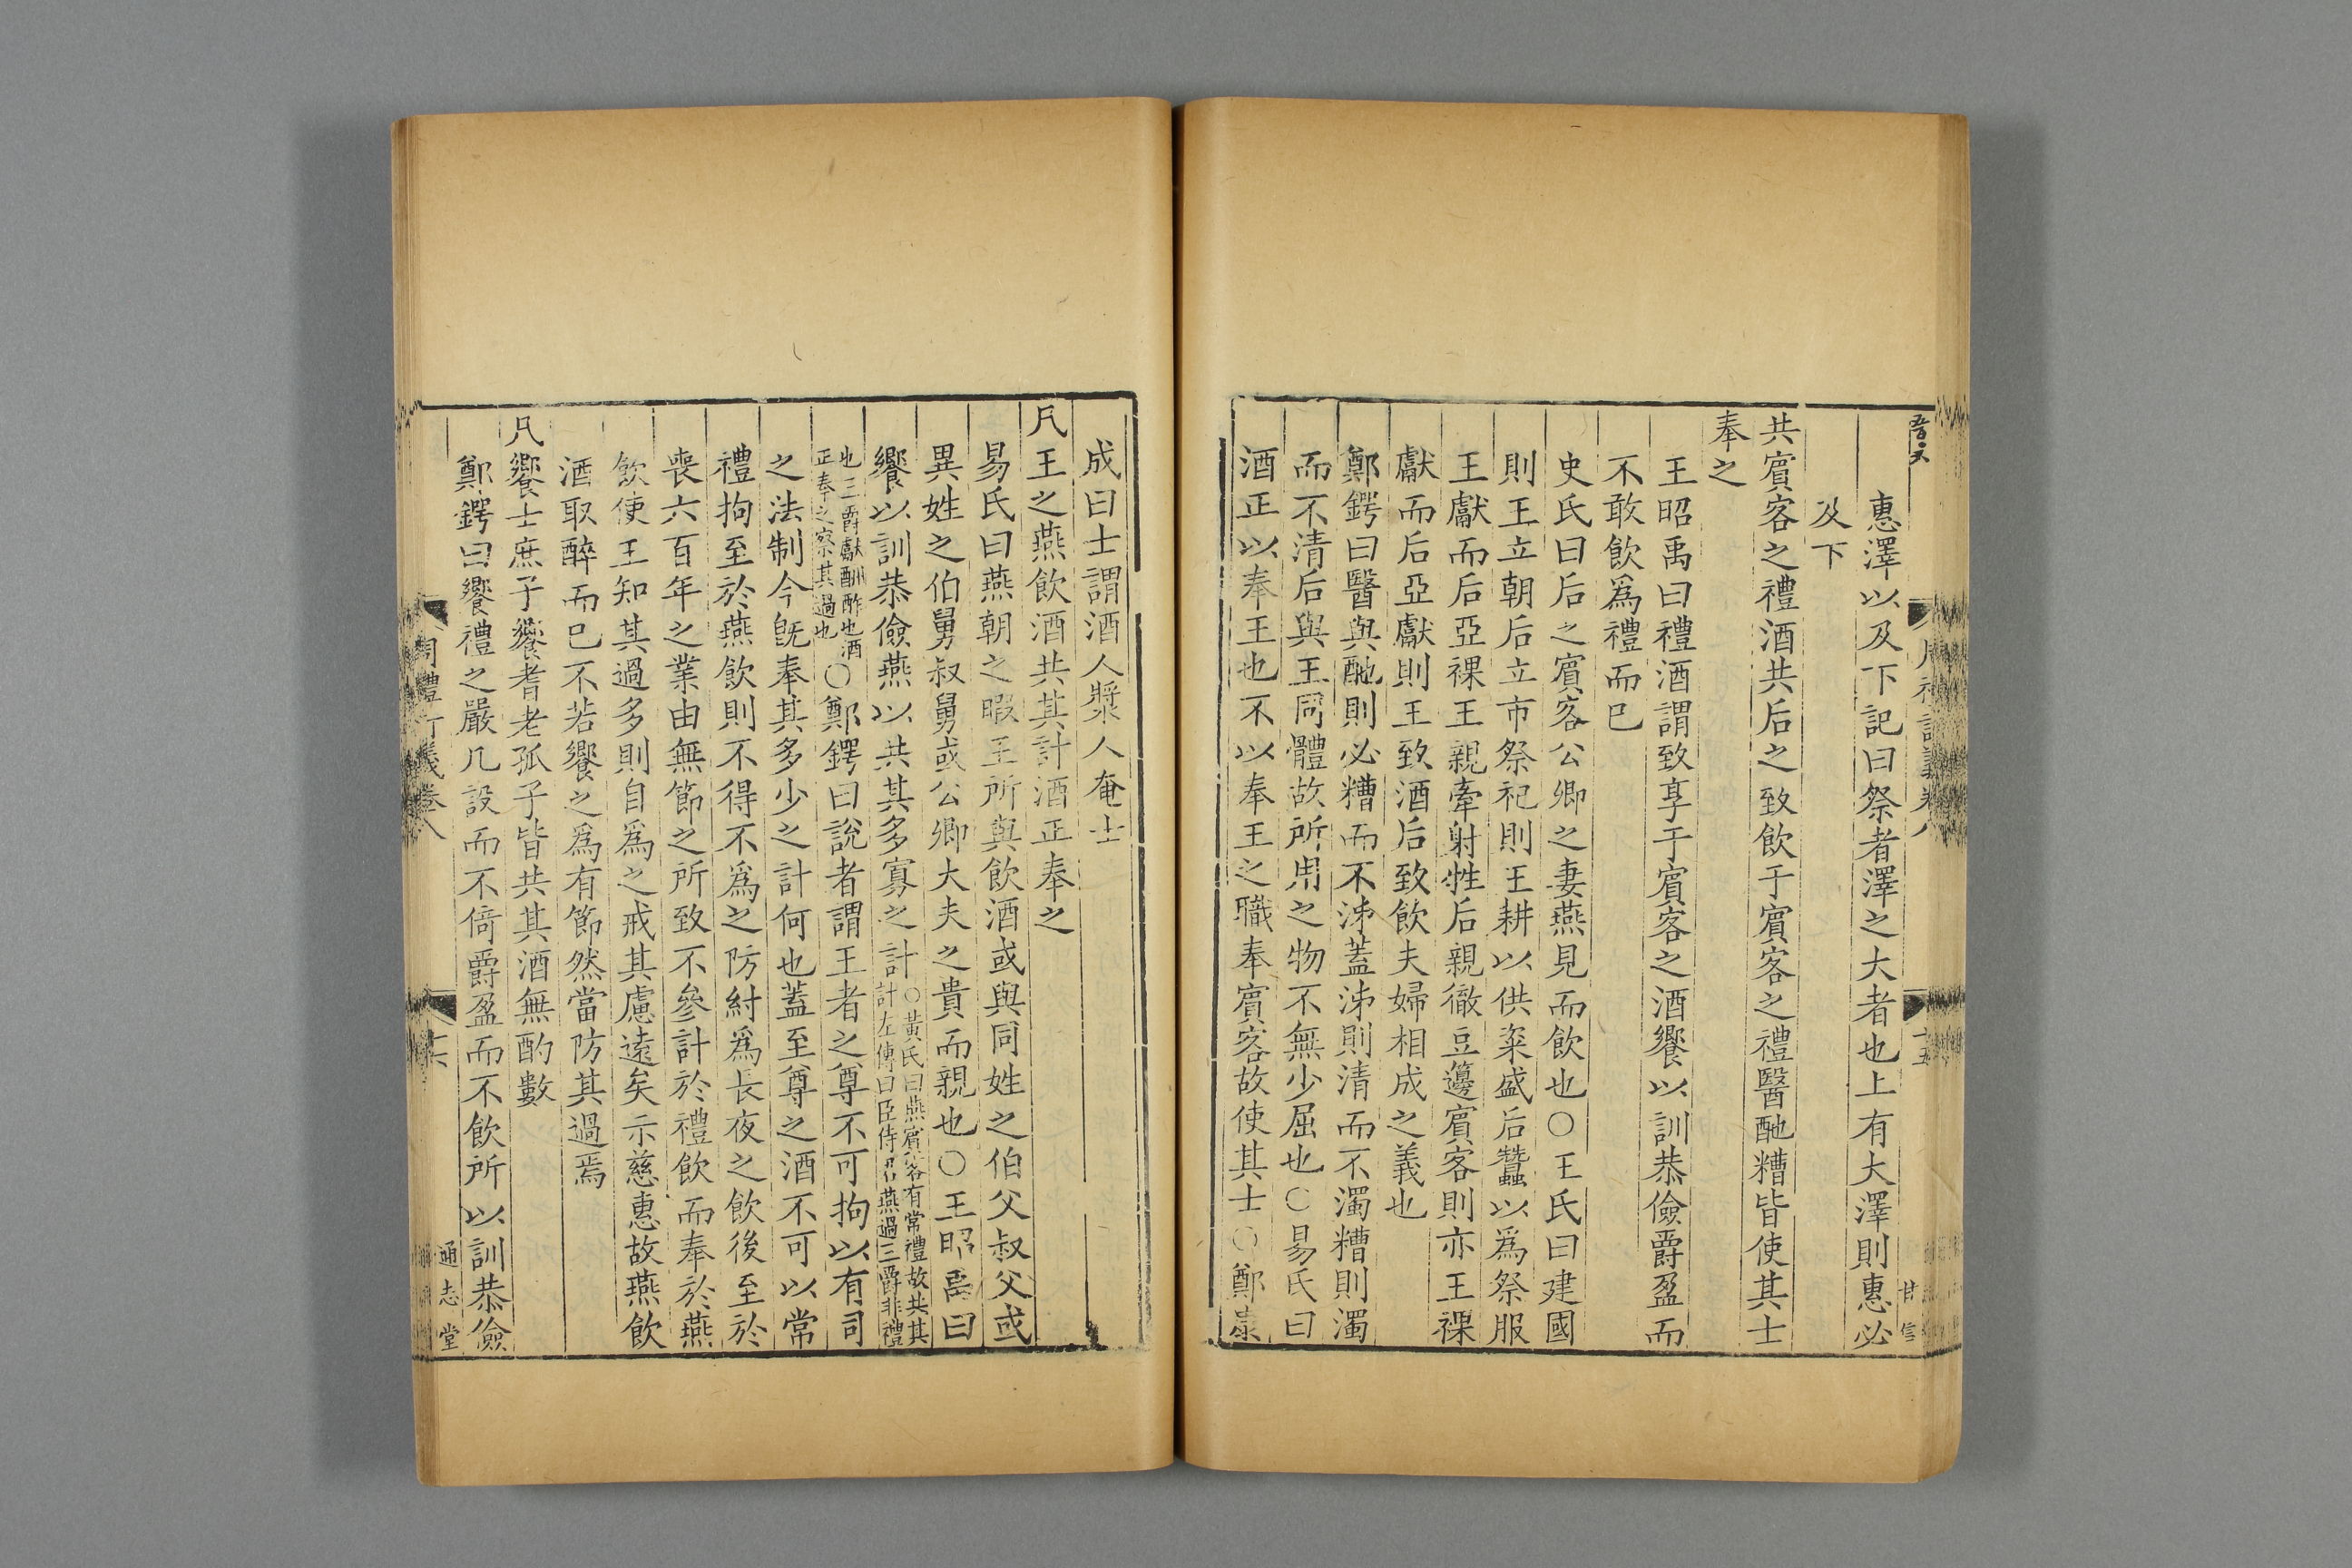 惠澤以及下記曰祭者澤之大者也上有大澤則惠必
及下
共賓客之禮酒共后之致飲于賓客之禮醫酏糟皆使其士
奉之
王昭禹曰禮酒謂致享于賓客之酒饗以訓恭儉爵盈而
不敢飲爲禮而已
史氏曰后之賓客公卿之妻燕見而飲也○王氏曰建國
則王立朝后立市祭祀則王耕以供粢盛后蠶以爲祭服
王獻而后亞祼王親牽射牲后親徹豆籩賓客則亦王祼
獻而后亞獻則王致酒后致飲夫婦相成之義也
鄭鍔曰醫與酏則必糟而不泲蓋泲則清而不濁糟則濁
而不清后與王同體故所用之物不無少屈也○易氏曰
酒正以奉王也不以奉王之職奉賓客故使其士○鄭康
周禮訂義卷八
十五
甘
信
成曰士謂酒人漿人奄士
凡王之燕飲酒共其計酒正奉之
易氏曰燕朝之暇王所與飲酒或與同姓之伯父叔父或
異姓之伯舅叔舅或公卿大夫之貴而親也○王昭禹曰
饗以訓恭儉燕以共其多寡之計○黃氏曰燕賓客有常禮故共其
計左傳曰臣侍君燕過三爵非禮
也三爵獻酬酢也酒
正奉之察其過也○鄭鍔曰說者謂王者之尊不可拘以有司
之法制今既奉其多少之計何也蓋至尊之酒不可以常
禮拘至於燕飲則不得不爲之防紂爲長夜之飲後至於
喪六百年之業由無節之所致不參計於禮飲而奉於燕
飲使王知其過多則自爲之戒其慮遠矣示慈惠故燕飲
酒取醉而已不若饗之爲有節然當防其過焉
凡饗士庶子饗耆老孤子皆共其酒無酌數
鄭鍔曰饗禮之嚴几設而不倚爵盈而不飲所以訓恭儉
周禮訂義卷八
十六
通志堂